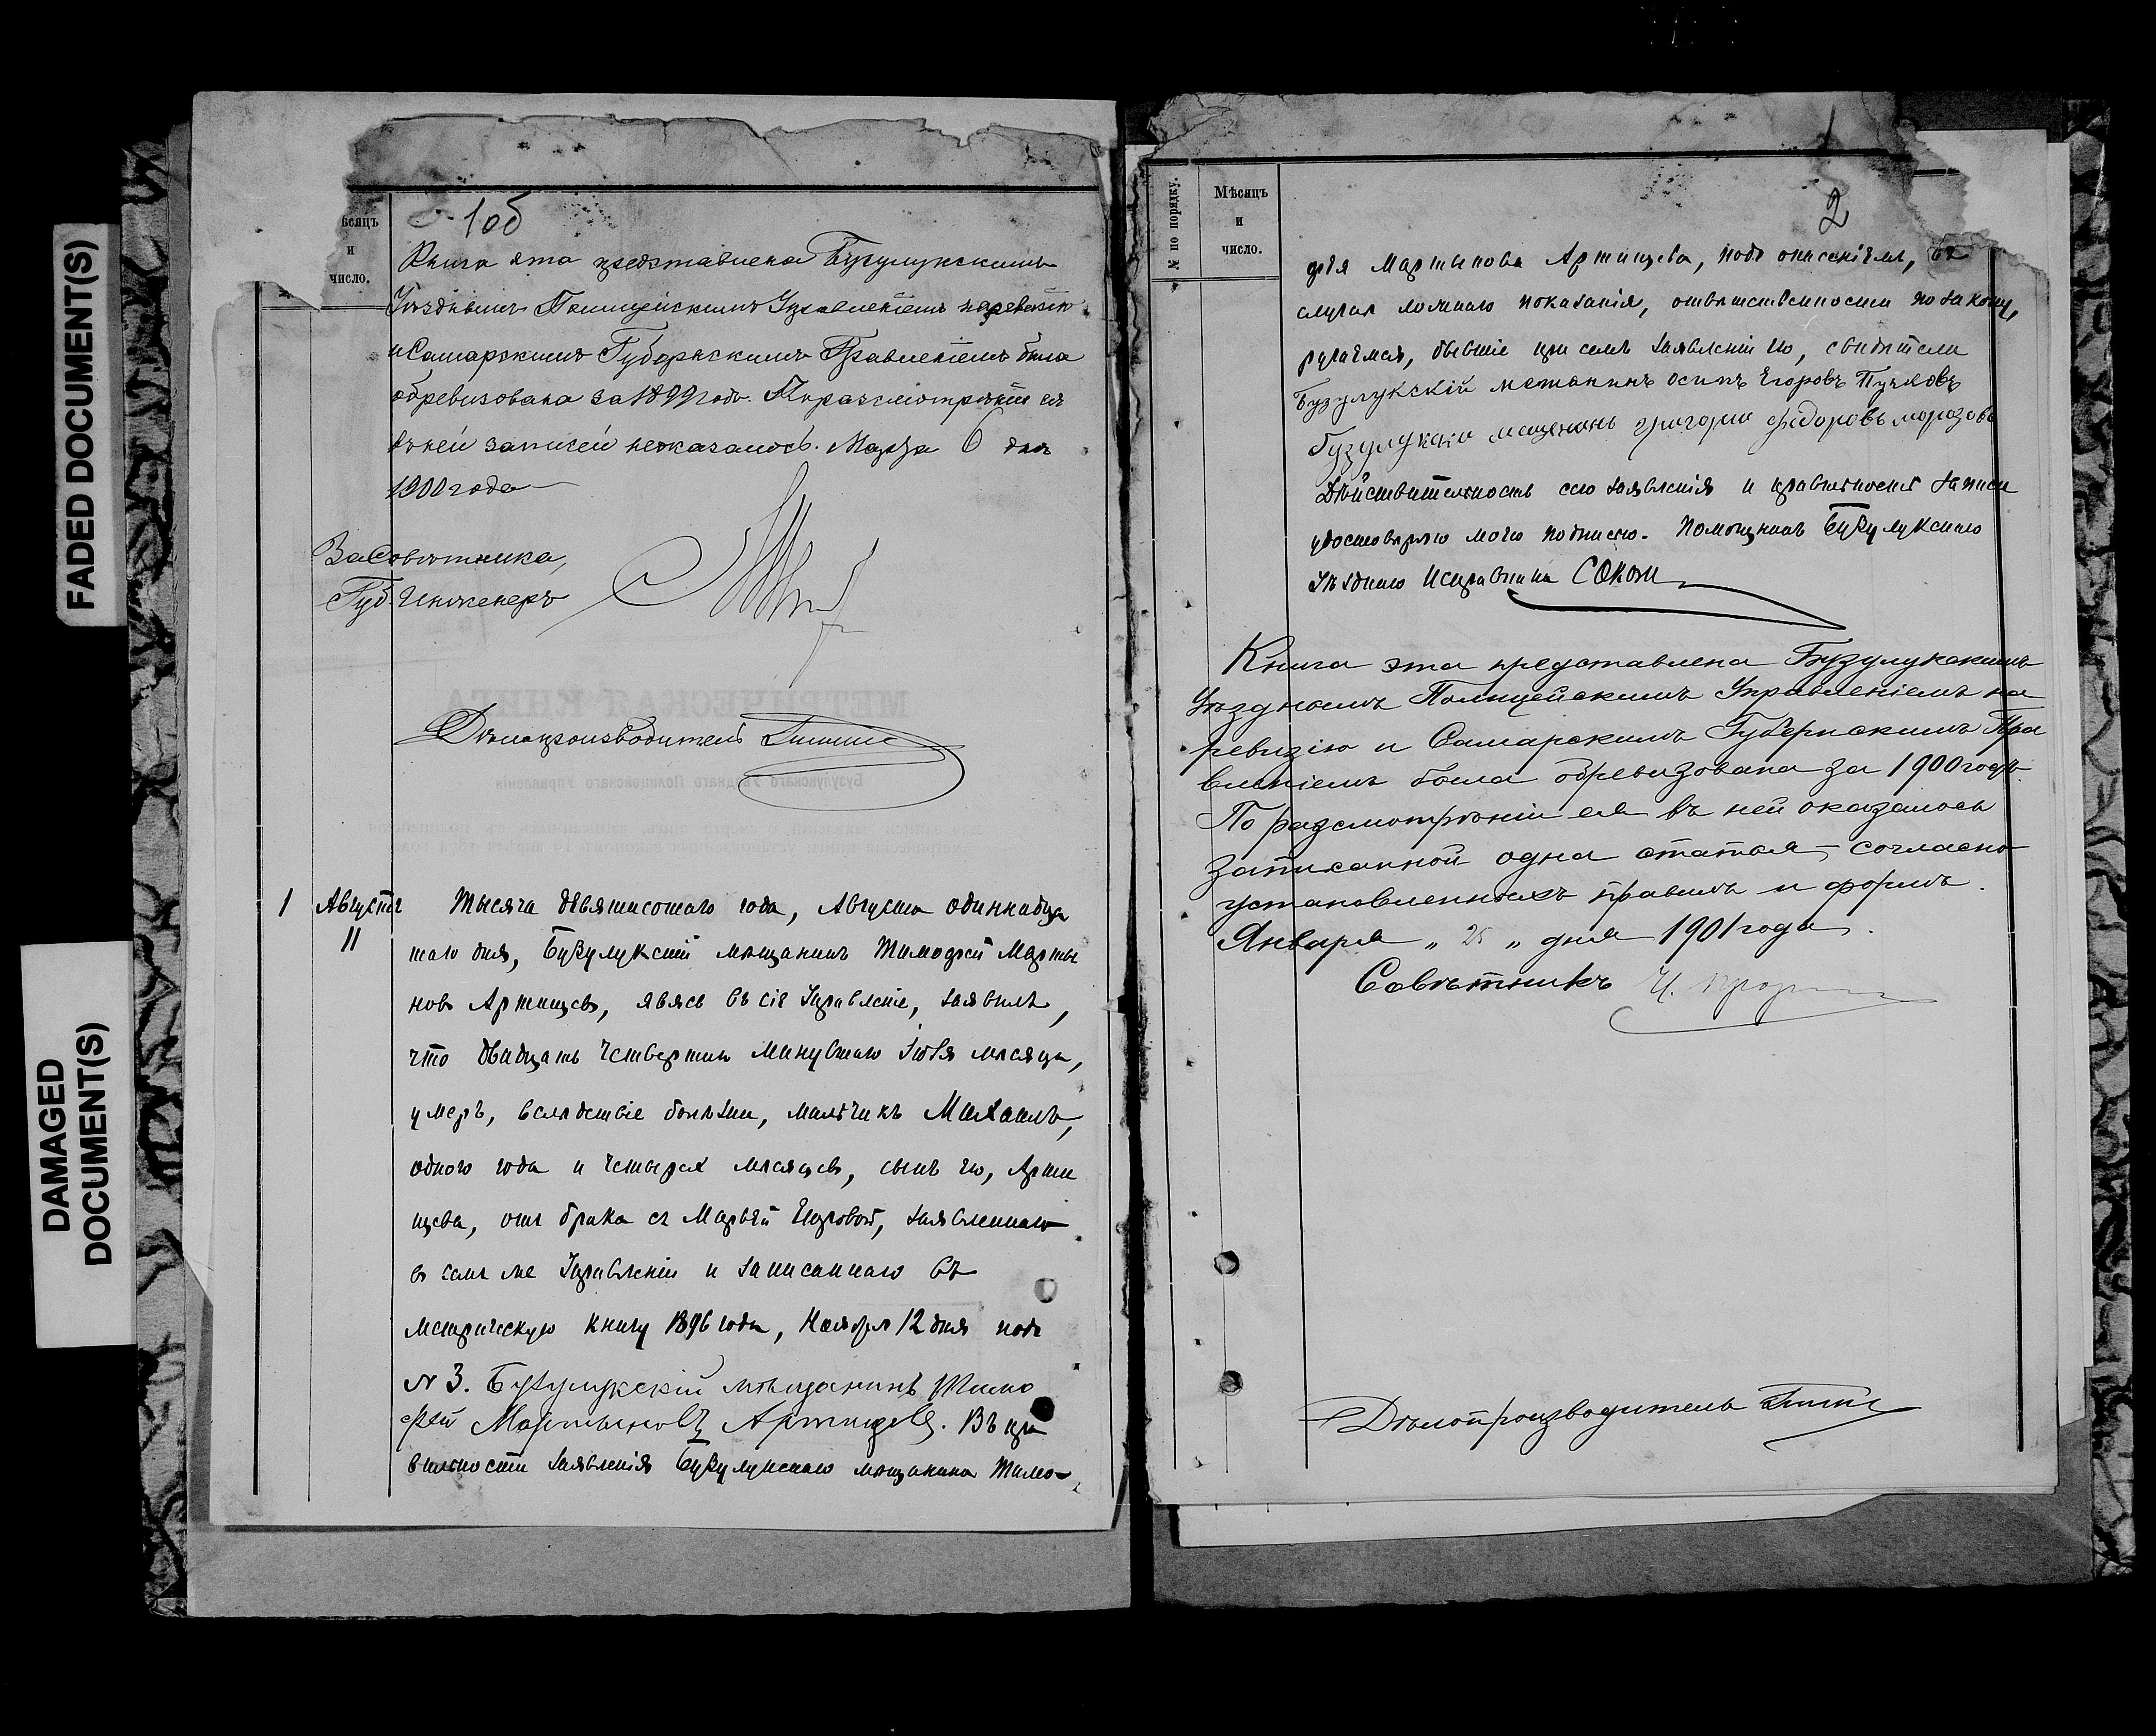 FADED DOCUMENT(S)
DAMAGED
DOCUMENT(S)
ѣсяцъ
и
число.
1об
Книга эта представлена Бузулукскимъ
Уѣзднымъ Полицейскимъ Управленіемъ на ревизію
и Самарскимъ Губернскимъ Правленіемъ была
обревизована за 1899 годъ. По разсмотрѣніи ея
въ ней записей неоказалось. Марта 6 дня
1900 года
За Совѣтника,
Губ. Инженеръ
Дѣлопроизводитель
1 Августа
11
Тысяча девятисотаго года, Августа одиннадца
таго дня, Бузулукскій мѣщанинъ Тимофей Марты
новъ Артищевъ, явясь въ сіе Управленіе, заявилъ,
что двадцать четвертаго минувшаго Іюля мѣсяца,
умеръ, вслѣдствіе болѣзни, мальчикъ Михаилъ,
одного года и четырехъ мѣсяцевъ, сынъ его, Арти
щева, отъ брака съ Марьей Егоровой, заявленнаго
въ семъ же Управленіи и записаннаго въ
метрическую книгу 1896 года, Ноября 12 дня подъ
№ 3. Бузулукскій мѣщанинъ Тимо
фей Мартыновъ Артищевъ. Въ пра
вильности заявленія Бузулукскаго мѣщанина Тимо-
№ по порядку.
Мѣсяцъ
и
число.
2
фея Мартынова Артищева, подъ опасеніемъ, въ
случаѣ ложнаго показанія, отвѣтственности по закону,
ручаемся, бывшіе при семъ заявленіи его, свидѣтели
Бузулукскій мѣщанинъ Осипъ Егоровъ
бузулукскіи мещенинъ григории федоровъ морозовъ
Дѣйствительность сего заявленія и правильность записи
удостовѣряю моею подписью. Помощникъ Бузулукскаго
Уѣзднаго Исправника
Книга эта представлена Бузулукскимъ
Уѣзднымъ Полицейскимъ Управленіемъ на
ревизію и Самарскимъ Губернскимъ Пра
вленіемъ была обревизована за 1900 годъ.
По разсмотрѣніи ея въ ней оказалось
записанной одна статья, согласно
установленныхъ правилъ и формъ.
Января „ 25 „ дня 1901 года.
Совѣтникъ
Дѣлопроизводитель